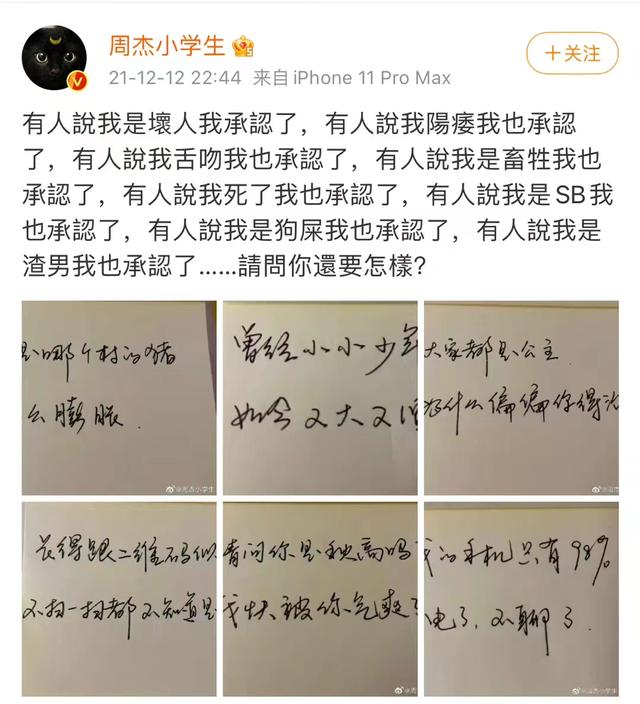 周杰小学生
+关注
21-12-12 22:44 来自 iPhone 11 Pro Max
有人說我是壞人我承認了，有人說我陽痿我也承認
了，有人說我舌吻我也承認了，有人說我是畜牲我也
承認了，有人說我死了我也承認了，有人說我是SB我
也承認了，有人說我是狗屎我也承認了，有人說我是
渣男我也承認了……請問你還要怎樣？
是哪个村的猪
么膨胀
@周杰小学生
曾经小小少年
如今又大又
大家都是公主
为什么偏偏你得
长得跟二维码似
不扫一扫都不知道是
请问你是秋高吗
我快被你气爽了
@周
我的手机只有98%
电了，不聊了
@周杰小学生